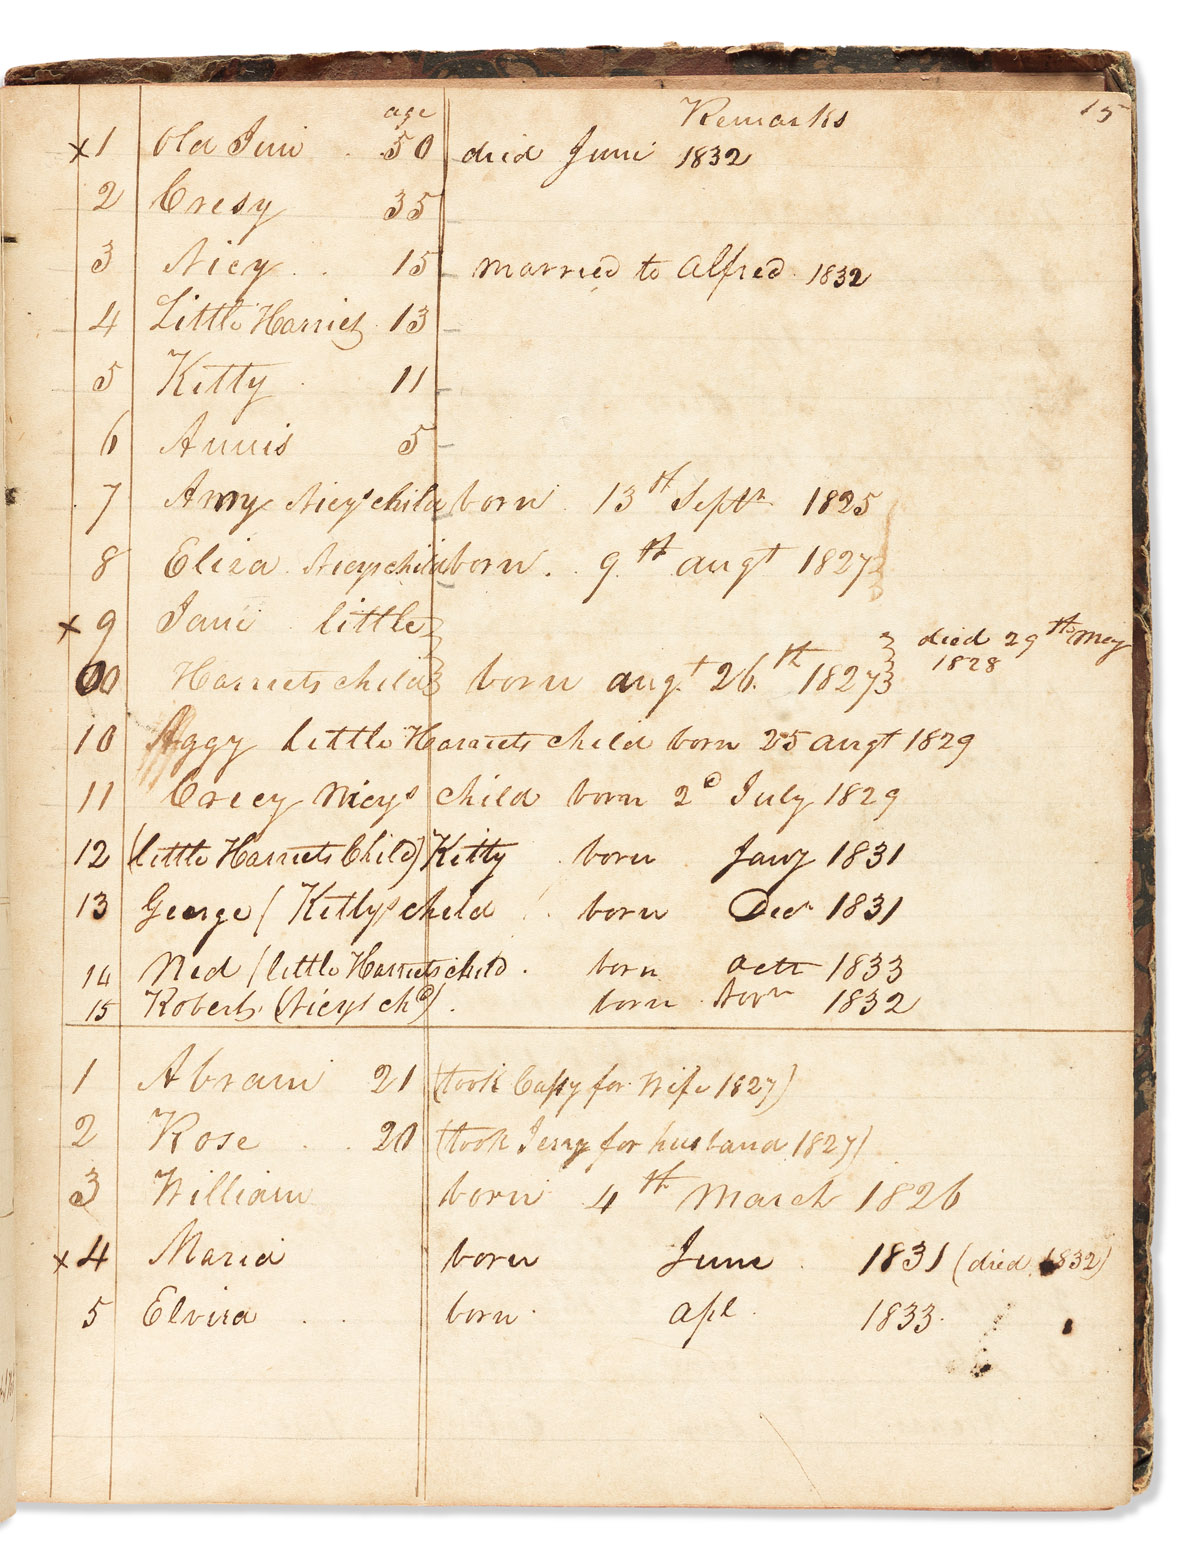 age Remarks 15
x 1 Old Juni 50 died June 1832
2 Cresy 35
3 Nicy 15 married to Alfred 1832
4 Little Harriet 13
5 Kitty 11
6 Annis 5
7 Amy Nicy's child born 13th Septr 1825
8 Eliza Nicys child born 9th augt 1827
x 9 Jane little
Harriets child born augt 26th 1827 died 29th May
1828
10 Aggy little Harriets child born 25 augt 1829
11 Crecy Nicys child born 2d July 1829
12 (little Harriets Child) Kitty born Jany 1831
13 George / Kittys child born Decr 1831
14 Ned / little Harriets child born octr 1833
15 Robert (Nicys chd) born Novr 1832
1 Abram 21 (took Capy for Wife 1827)
2 Rose 20 (took Jerry for husband 1827)
3 William born 4th March 1826
x 4 Maria born June 1831 (died 1832)
5 Elvira born Apl 1833